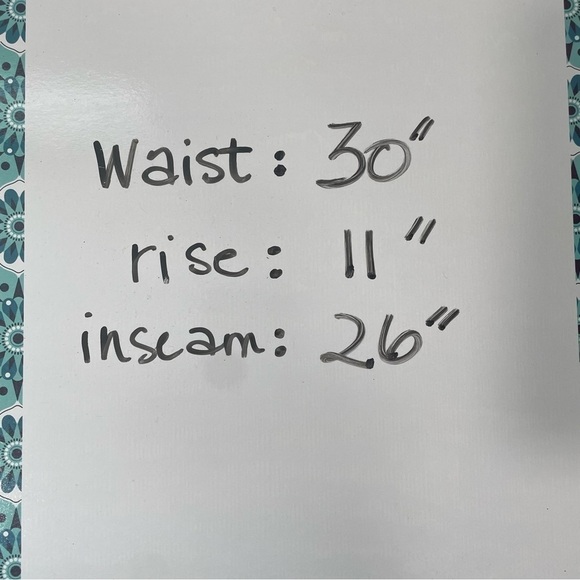 Waist: 30"
rise: 11"
inseam: 26"